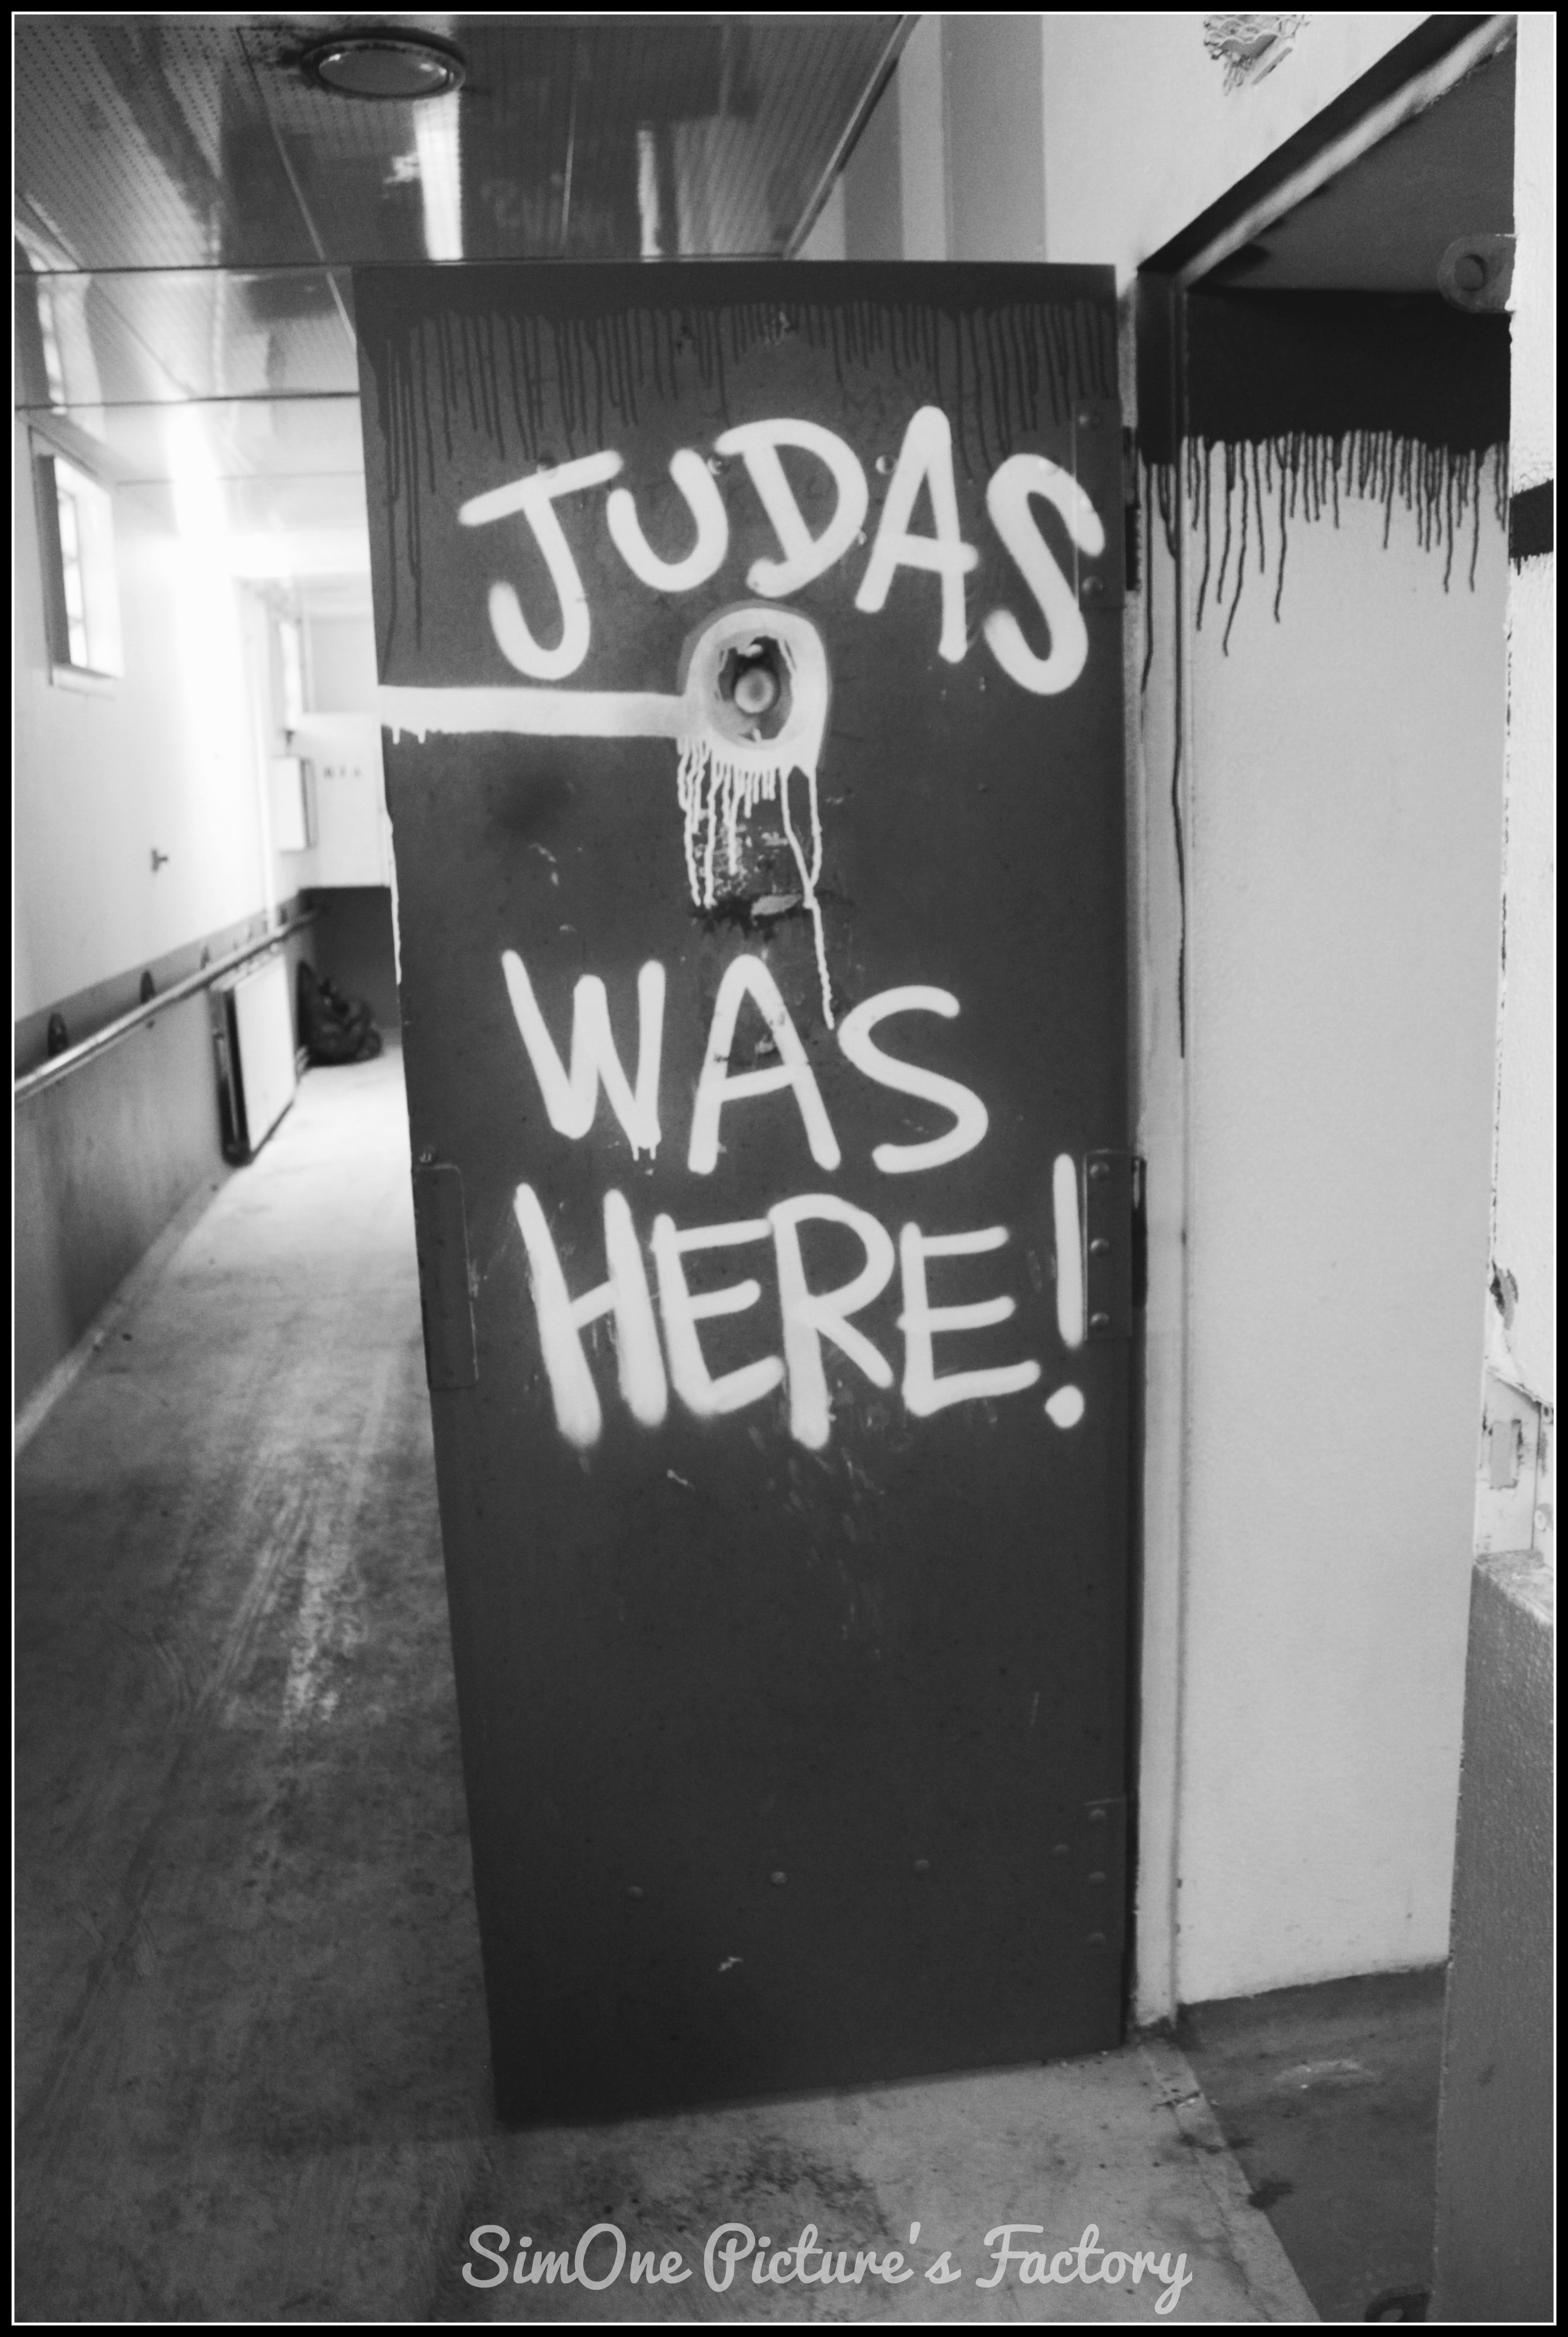 JUDAS
WAS
HERE!
SimOne Picture's Factory